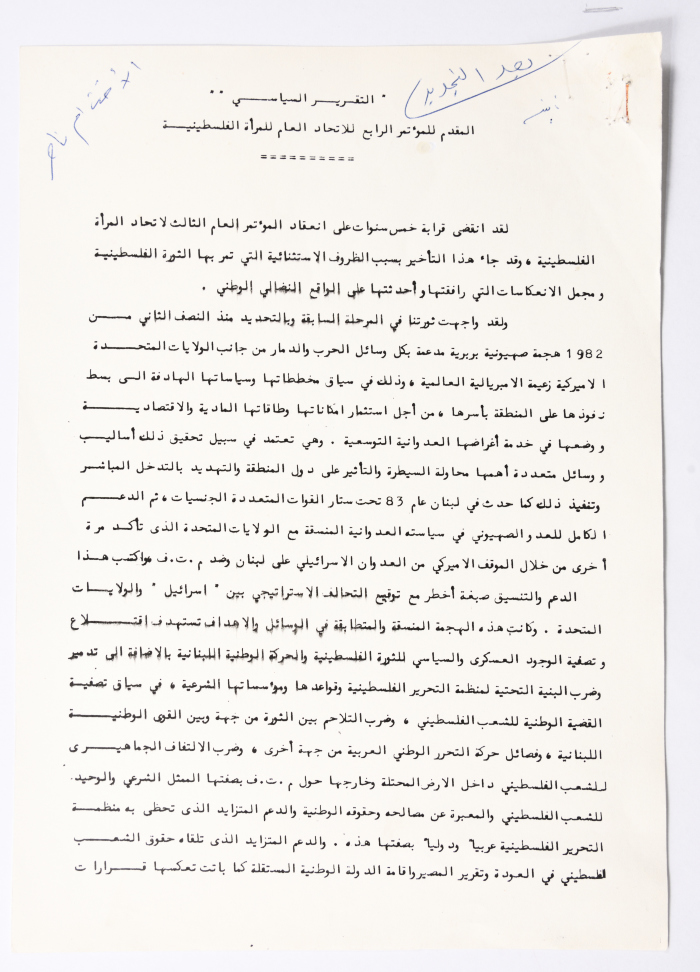 بعد التجديد
الأخت ام ناصر
" التقرير السياســـي "
المقدم للمؤتمر الرابع للاتحاد العام للمرأة الفلسطينيـــة
==========
لقد انقضى قرابة خمس سنوات على انعقاد المؤتمر العام الثالث لاتحاد المرأة
الفلسطينية ، وقد جاء هذا التأخير بسبب الظروف الاستثنائية التي تمر بها الثورة الفلسطينيـة
ومجمل الانعكاسات التي رافقتها وأحدثتها على الواقع النضالي الوطني .
ولقد واجهت ثورتنا في المرحلة السابقة وبالتحديد منذ النصف الثاني مـــن
1982 هجمة صهيونية بربرية مدعمة بكل وسائل الحرب والدمار من جانب الولايات المتحـــدة
الاميركية زعيمة الامبريالية العالمية ، وذلك في سياق مخططاتها وسياساتها الهادفة الـى بسط
نفوذها على المنطقة بأسرها ، من أجل استثمار امكاناتها وطاقاتها المادية والاقتصاديـــة
ووضعها في خدمة أغراضها العدوانية التوسعية . وهي تعتمد في سبيل تحقيق ذلك أساليـب
ووسائل متعددة أهمها محاولة السيطرة والتأثير على دول المنطقة والتهديد بالتدخل المباشـر
وتنفيذ ذلك كما حدث في لبنان عام 83 تحت ستار القوات المتعددة الجنسيات ، ثم الدعـــم
الكامل للعدو الصهيوني في سياسته العدوانية المنسقة مع الولايات المتحدة الذى تأكـد مرة
أخرى من خلال الموقف الاميركي من العدوان الاسرائيلي على لبنان وضد م .ت.ف ، واكتسب هـذا
الدعم والتنسيق صبغة أخطر مع توقيع التحالف الاستراتيجي بين " اسرائيل " والولايـــات
المتحدة . وكانت هذه الهجمة المنسقة والمتطابقة في الوسائل والاهداف تستهدف اقتـــلاع
وتصفية الوجود العسكرى والسياسي للثورة الفلسطينية والحركة الوطنية اللبنانية بالاضافة الى تدمير
وضرب البنية التحتية لمنظمة التحرير الفلسطينية وقواعدها ومؤسساتها الشرعية ، في سياق تصفيـة
القضية الوطنية للشعب الفلسطيني ، وضرب التلاحم بين الثورة من جهة وبين القوى الوطنيـــة
اللبنانية ، وفصائل حركة التحرر الوطني العربية من جهة أخرى ، وضرب الالتفاف الجماهيـــرى
للشعب الفلسطيني داخل الارض المحتلة وخارجها حول م .ت.ف بصفتها الممثل الشرعي والوحيد
للشعب الفلسطيني والمعبرة عن مصالحه وحقوقه الوطنية والدعم المتزايد الذى تحظى به منظمـــة
التحرير الفلسطينية عربياً ودولياً بصفتها هذه . والدعم المتزايد الذى تلقاه حقوق الشعـــب
الفلسطيني في العودة وتقرير المصير واقامة الدولة الوطنية المستقلة كما باتت تعكسها قــرارات